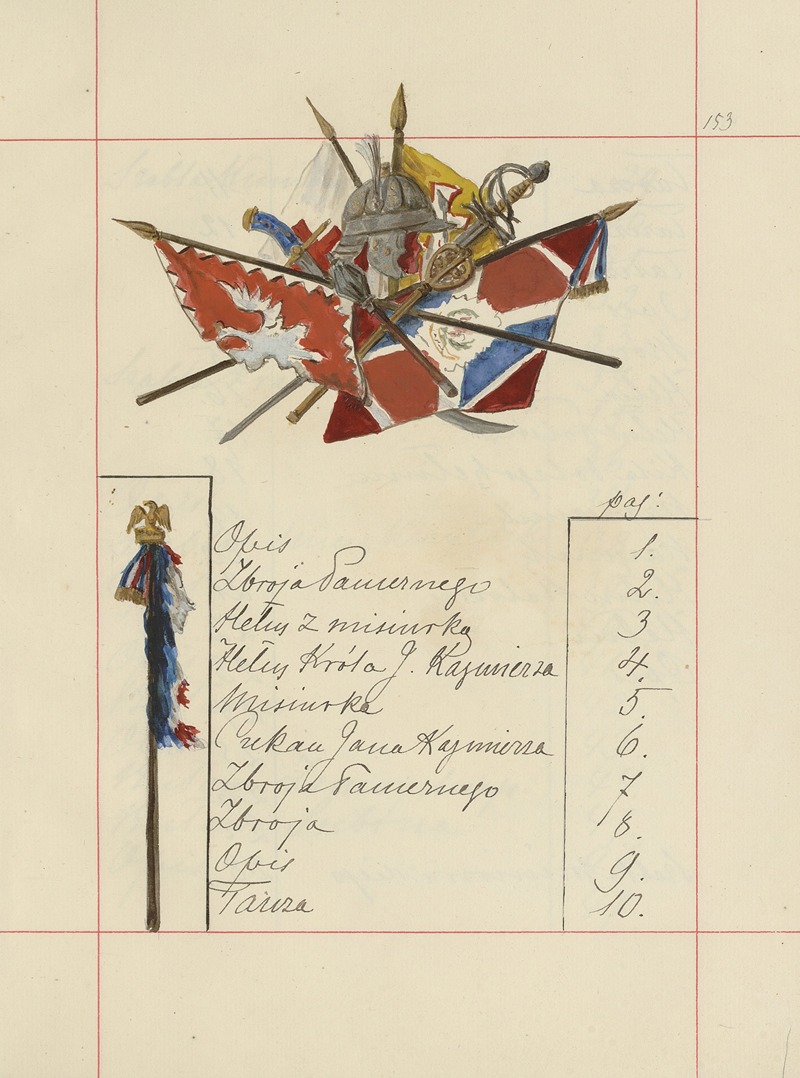 153
pag:
Opis 1.
Zbroja Pancernego 2.
Hełm z misiurką 3
Hełm Króla J. Kazimierza 4.
Misiurka 5.
Czekan Jana Kazimierza 6.
Zbroja Pancernego 7
Zbroja 8.
Opis 9.
Tarcza 10.